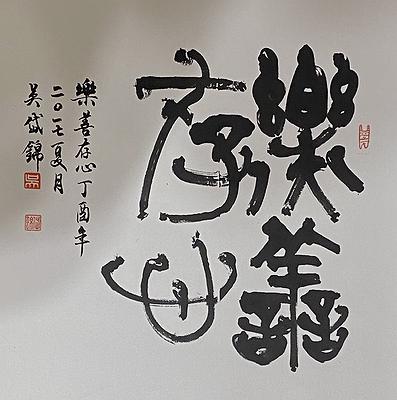 樂善
存心
樂善存心丁酉年
二〇一七夏月
吴岱錦